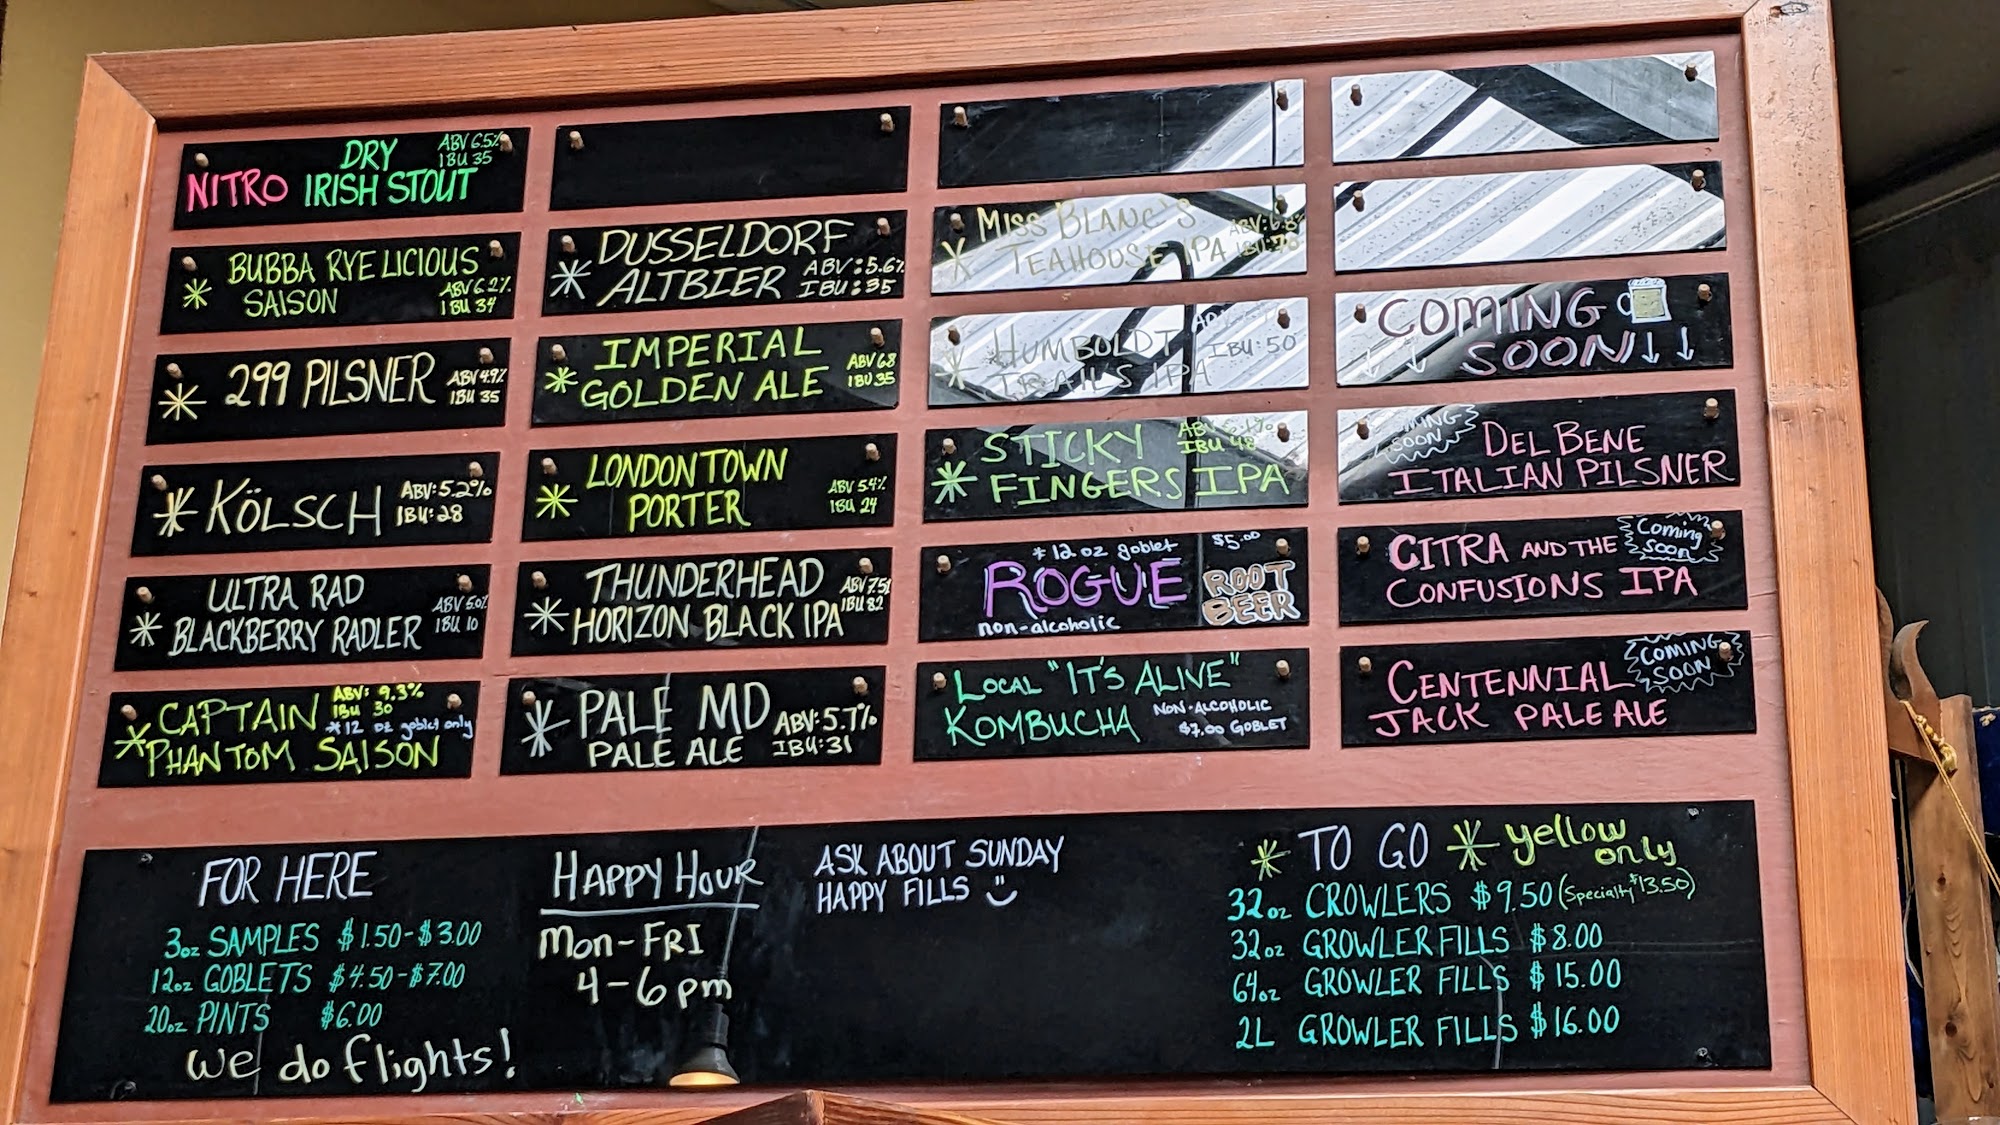 DRY ABV 6.5%
NITRO IRISH STOUT IBU 35
* BUBBA RYE LICIOUS
SAISON ABV 6.2%
IBU 34
* 299 PILSNER ABV 4.9%
IBU 35
* KÖLSCH ABV: 5.2%
IBU: 28
* ULTRA RAD ABV 5.0%
BLACKBERRY RADLER IBU 10
* CAPTAIN ABV: 9.3%
IBU 30
*12 oz goblet only
PHANTOM SAISON
* DUSSELDORF
ALTBIER ABV: 5.6%
IBU: 35
* IMPERIAL ABV 6.8
GOLDEN ALE IBU 35
* LONDON TOWN ABV 5.4%
PORTER IBU 24
* THUNDERHEAD ABV 7.51
HORIZON BLACK IPA IBU 82
* PALE MD ABV: 5.7%
PALE ALE IBU: 31
* MISS BLANC'S ABV: 6.8%
TEAHOUSE IPA IBU:
* HUMBOLDT
TRAILS IPA IBU: 50
* STICKY
FINGERS IPA IBU 48
* 12 oz goblet $5.00
ROGUE ROOT
BEER
non-alcoholic
LOCAL "IT'S ALIVE"
KOMBUCHA NON-ALCOHOLIC
$7.00 GOBLET
COMING
SOON ↓ ↓
COMING
SOON
DEL BENE
ITALIAN PILSNER
CITRA AND THE Coming
Soon
CONFUSIONS IPA
CENTENNIAL COMING
SOON
JACK PALE ALE
FOR HERE
3oz SAMPLES $1.50-$3.00
12oz GOBLETS $4.50-$7.00
20oz PINTS $6.00
we do flights!
HAPPY HOUR
MON-FRI
4-6pm
ASK ABOUT SUNDAY
HAPPY FILLS
* TO GO * yellow
only
32oz CROWLERS $9.50 (Specialty $13.50)
32oz GROWLER FILLS $8.00
64oz GROWLER FILLS $15.00
2L GROWLER FILLS $16.00